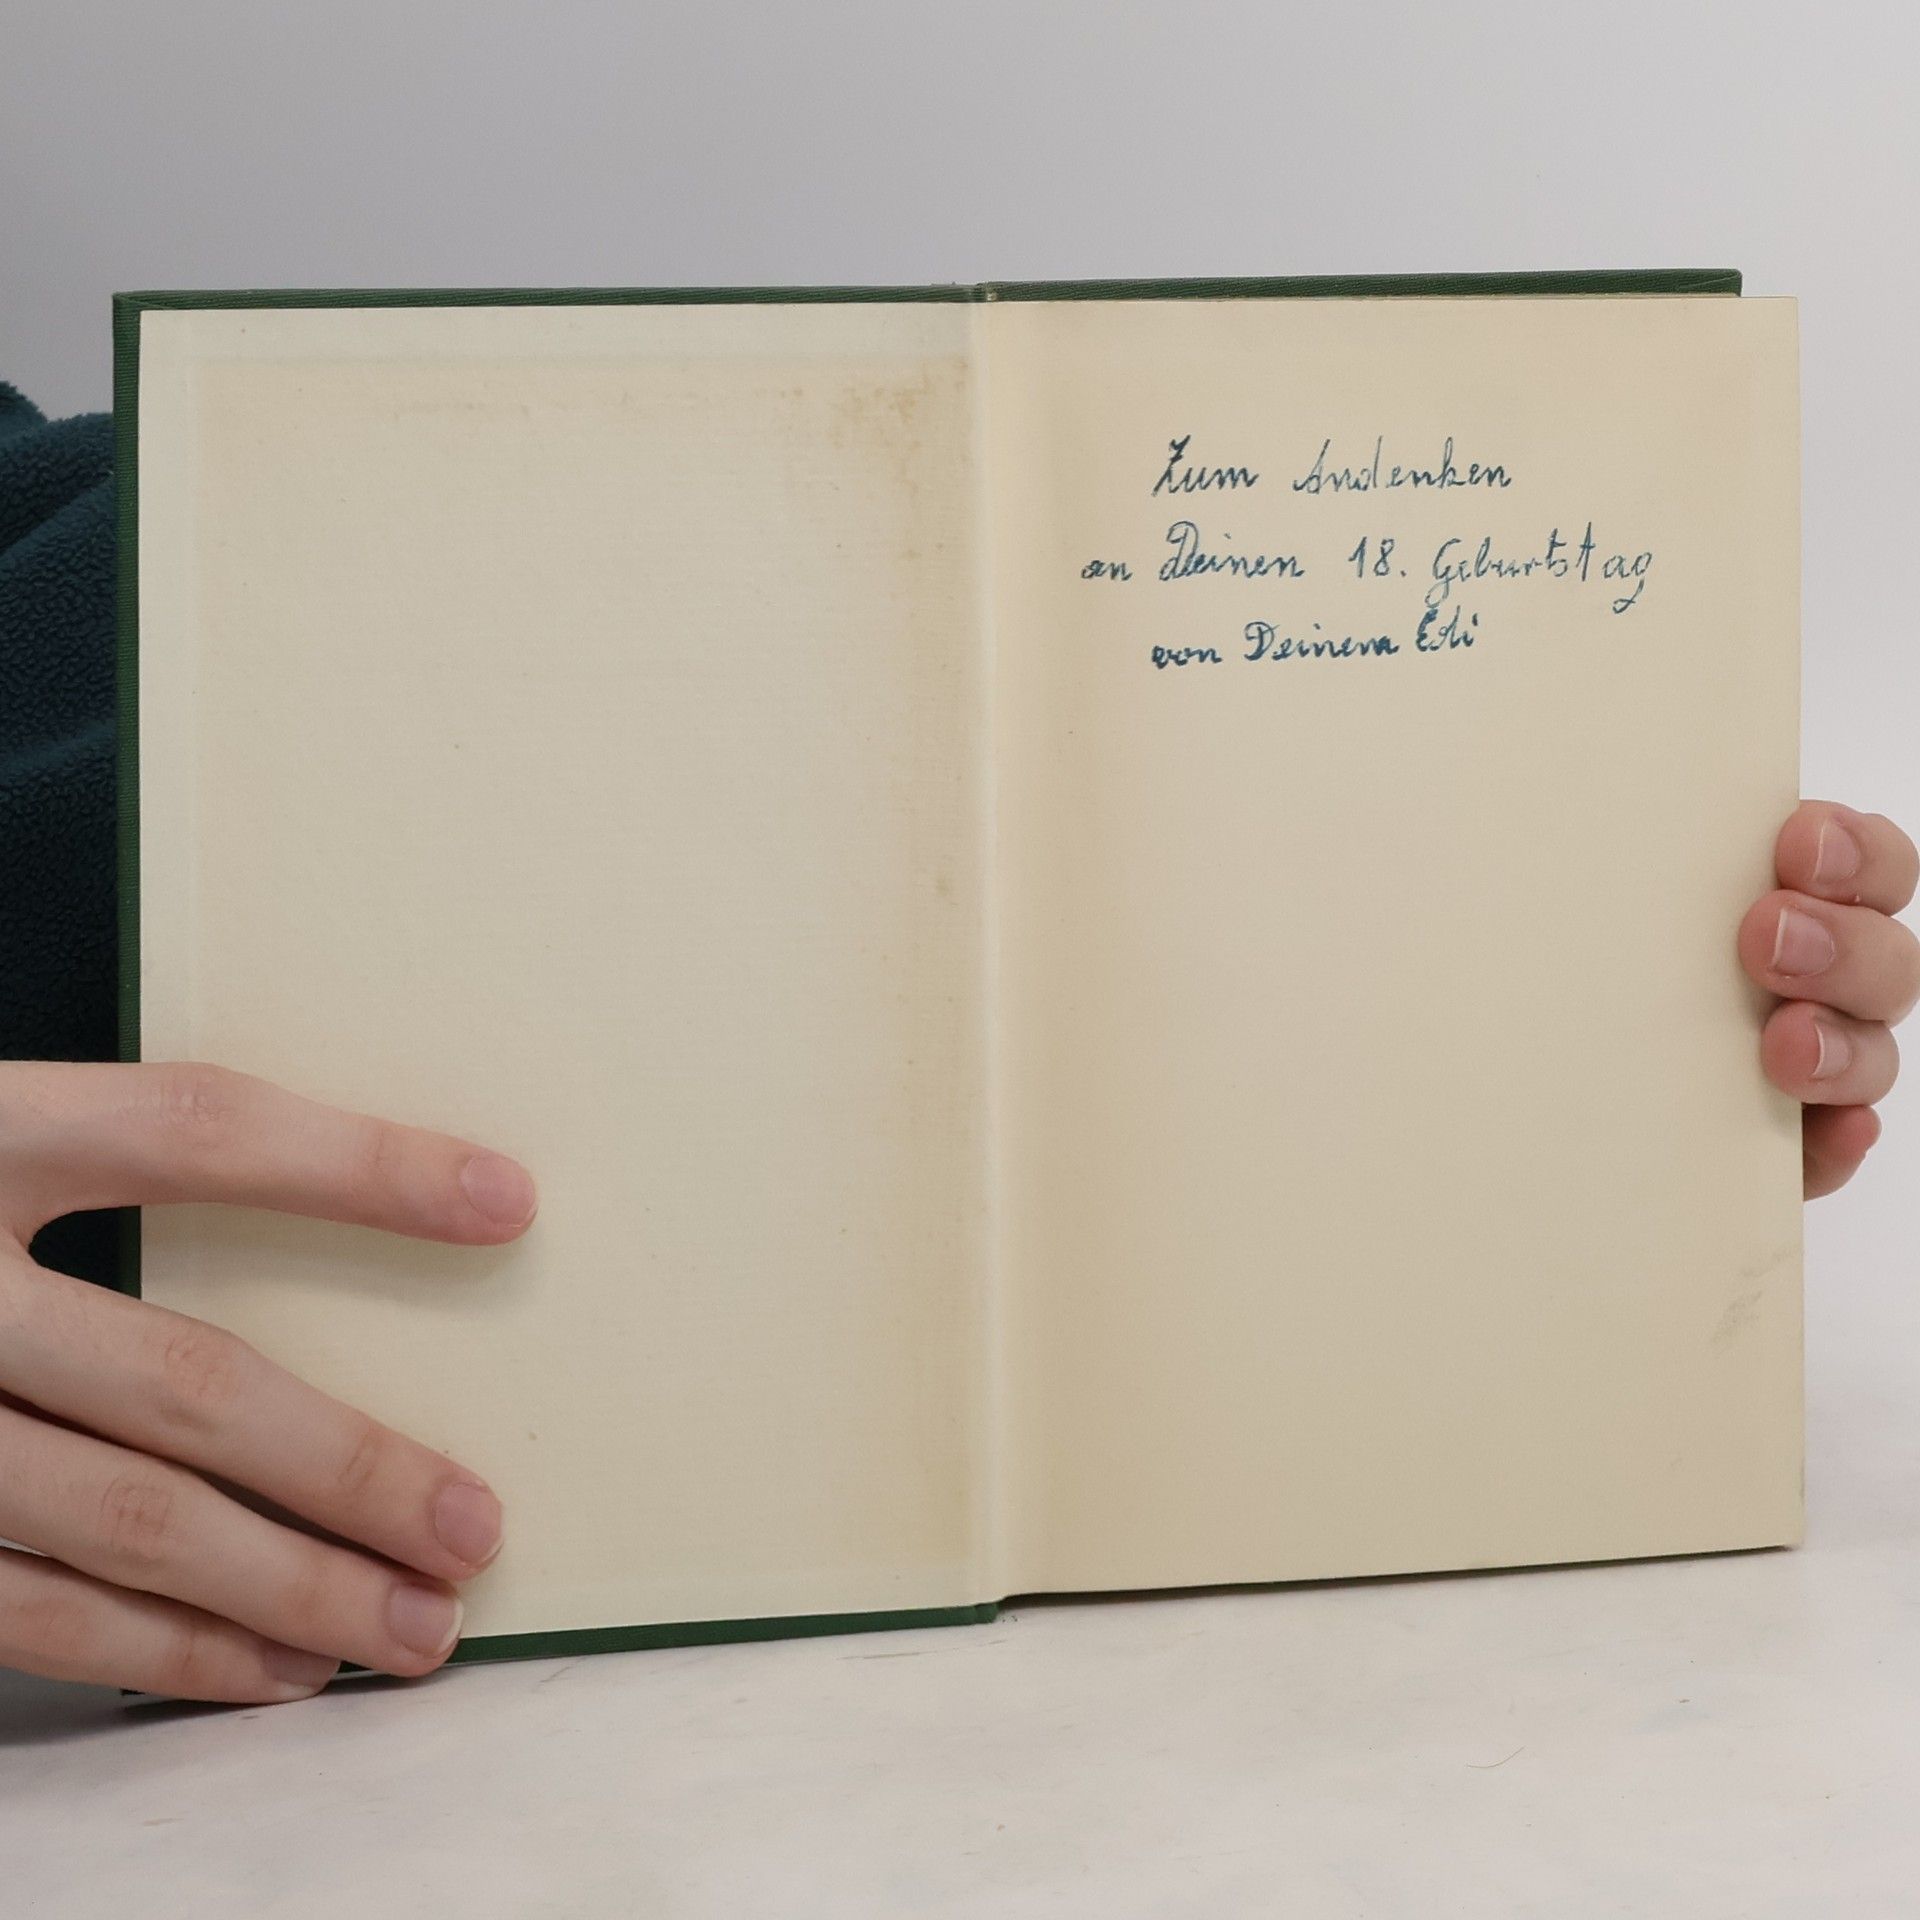 Zum Andenken
an Deinen 18. Geburtstag
von Deinem